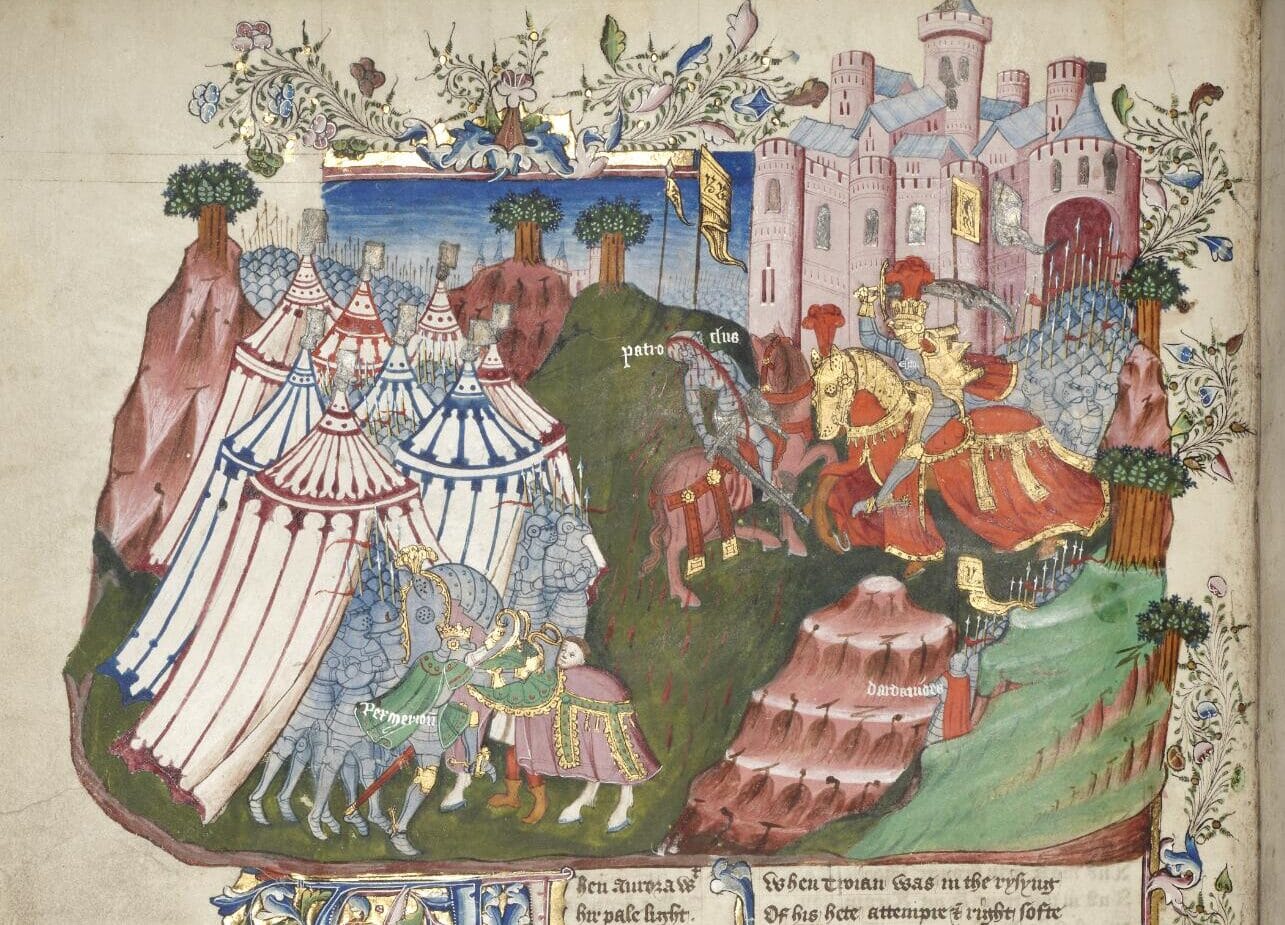 patro clus
permerion
dardanides
hen aurora wt
hir pale light.
When twian was in the rysyng
Of his hete attempre & right softe